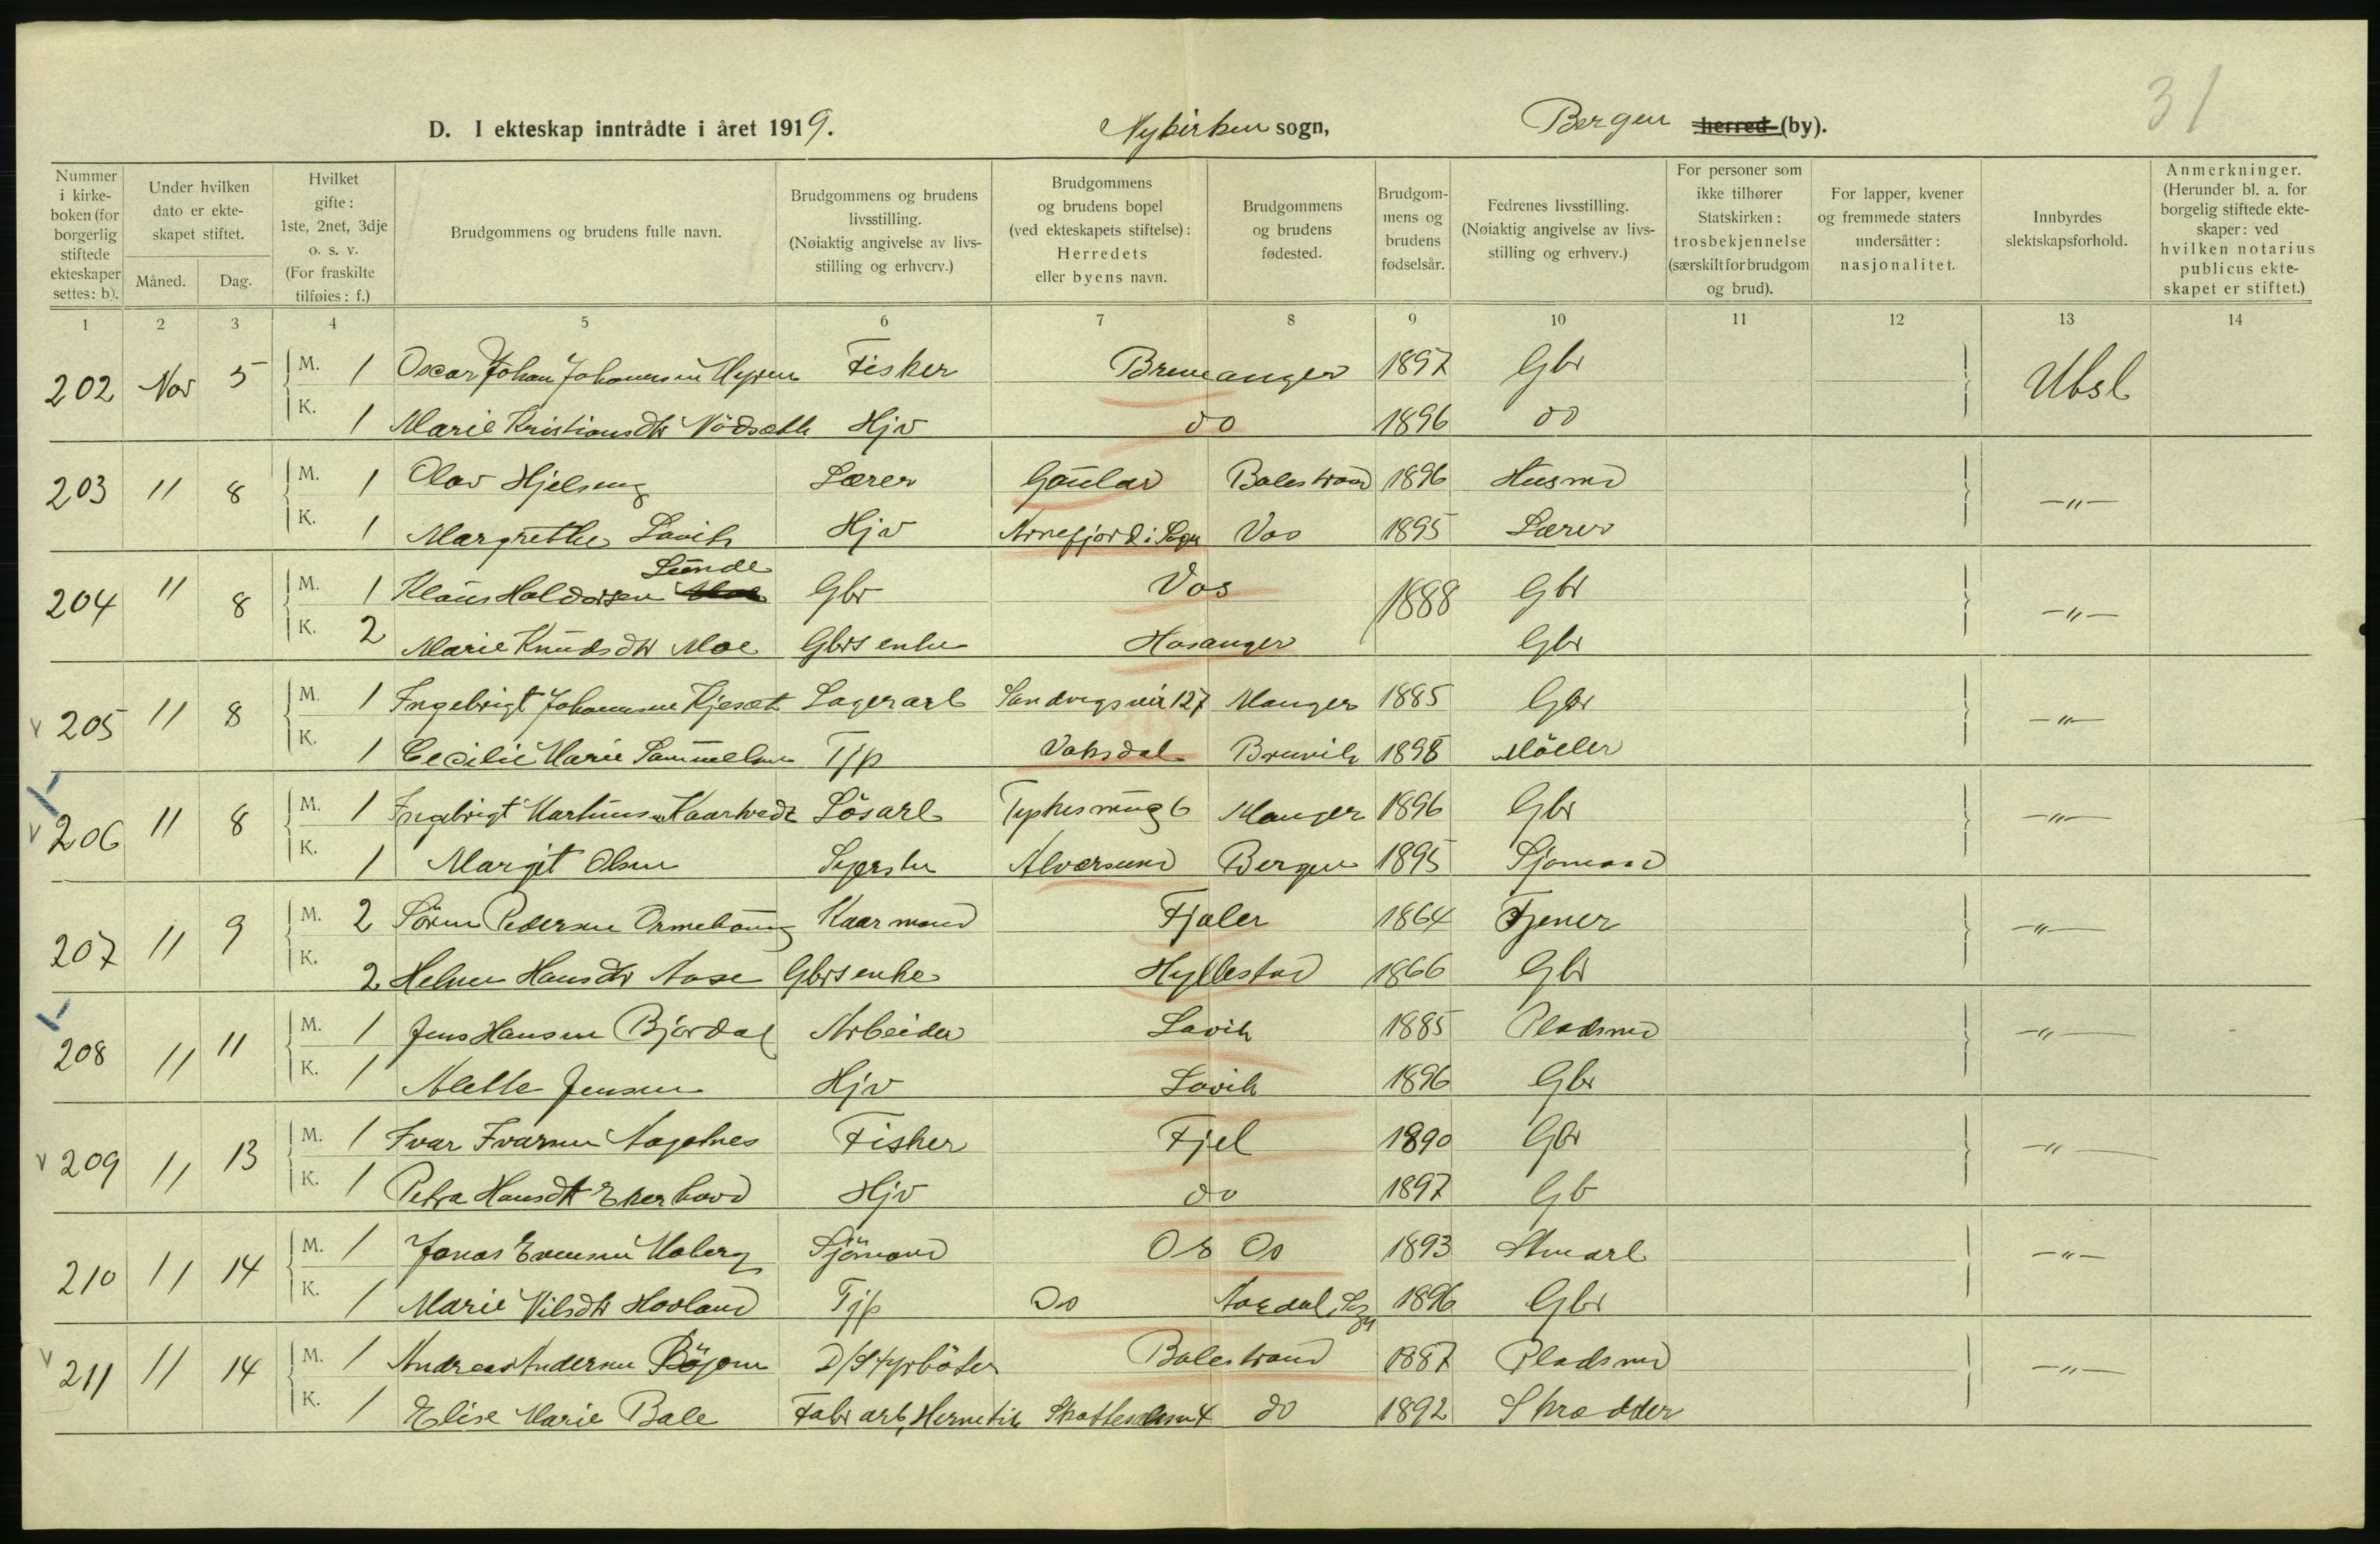 31
D. I ekteskap inntrådte i året 1919. Nykirken sogn, Bergen herred (by).
Nummer i kirkeboken (for borgerlig stiftede ekteskaper settes: b).
Under hvilken dato er ekteskapet stiftet.
Måned. Dag.
Hvilket gifte: 1ste, 2net, 3dje o. s. v. (For fraskilte tilføies: f.)
Brudgommens og brudens fulle navn.
Brudgommens og brudens livsstilling. (Nøiaktig angivelse av livsstilling og erhverv.)
Brudgommens og brudens bopel (ved ekteskapets stiftelse): Herredets eller byens navn.
Brudgommens og brudens fødested.
Brudgommens og brudens fødselsår.
Fedrenes livsstilling. (Nøiaktig angivelse av livsstilling og erhverv.)
For personer som ikke tilhører Statskirken: trosbekjennelse (særskilt for brudgom og brud).
For lapper, kvener og fremmede staters undersåtter: nasjonalitet.
Innbyrdes slektskapsforhold.
Anmerkninger. (Herunder bl. a. for borgelig stiftede ekteskaper: ved hvilken notarius publicus ekteskapet er stiftet.)
1 2 3 4 5 6 7 8 9 10 11 12 13 14
202 Nov 5 M. 1 Oscar Johan Johannesen Myren Fisker Bremanger 1897 Gbr Ubsl
K. 1 Marie Kristiansdtr Nödseth Hjv do 1896 do
203 " 8 M. 1 Olav Hjelseng Lærer Gaular Balestrand 1896 Husmd —"—
K. 1 Margrethe Lavik Hjv Arnefjord i Sogn Vos 1895 Lærer
204 " 8 M. 1 Klaus Haldorsen Lunde Gbr Vos 1888 Gbr —"—
K. 2 Marie Knudsdtr Moe Gbrs enke Hosanger Gbr
205 " 8 M. 1 Ingebrigt Johannesen Kjesæt Lagerarb Sandvigsvei 127 Manger 1885 Gbr —"—
K. 1 Cecilie Marie Sammuelsen Tjp Vaksdal Bruvik 1898 Möller
206 " 8 M. 1 Ingebrigt Martinsen Kaartvedt Lösarb Typkesmug 6 Manger 1896 Gbr —"—
K. 1 Margit Olsen Syerske Alversund Bergen 1895 Sjömand
207 " 9 M. 2 Sören Pedersen Ormehaug Kaarmand Fjaler 1864 Tjener —"—
K. 2 Helene Hansdtr Aase Gbrs enke Hyllestad 1866 Gbr
208 " 11 M. 1 Jens Hansen Bjordal Arbeider Lavik 1885 Pladsmd —"—
K. 1 Alette Jensen Hjv Lavik 1896 Gbr
209 " 13 M. 1 Ivar Ivarsen Aagotnes Fisker Fjel 1890 Gbr —"—
K. 1 Petra Hansdtr Ekerhovd Hjv do 1897 Gb
210 " 14 M. 1 Jonas Evensen Moberg Sjömand Os Os 1893 Stuarb —"—
K. 1 Marie Nilsdtr Hovland Tjp Os Aardal, Sogn 1896 Gbr
211 " 14 M. 1 Andreas Andersen Böjom D/S fyrböter Balestrand 1887 Pladsmd —"—
K. 1 Elise Marie Bale Fabr arb, Hermetik do 1892 Skrædder